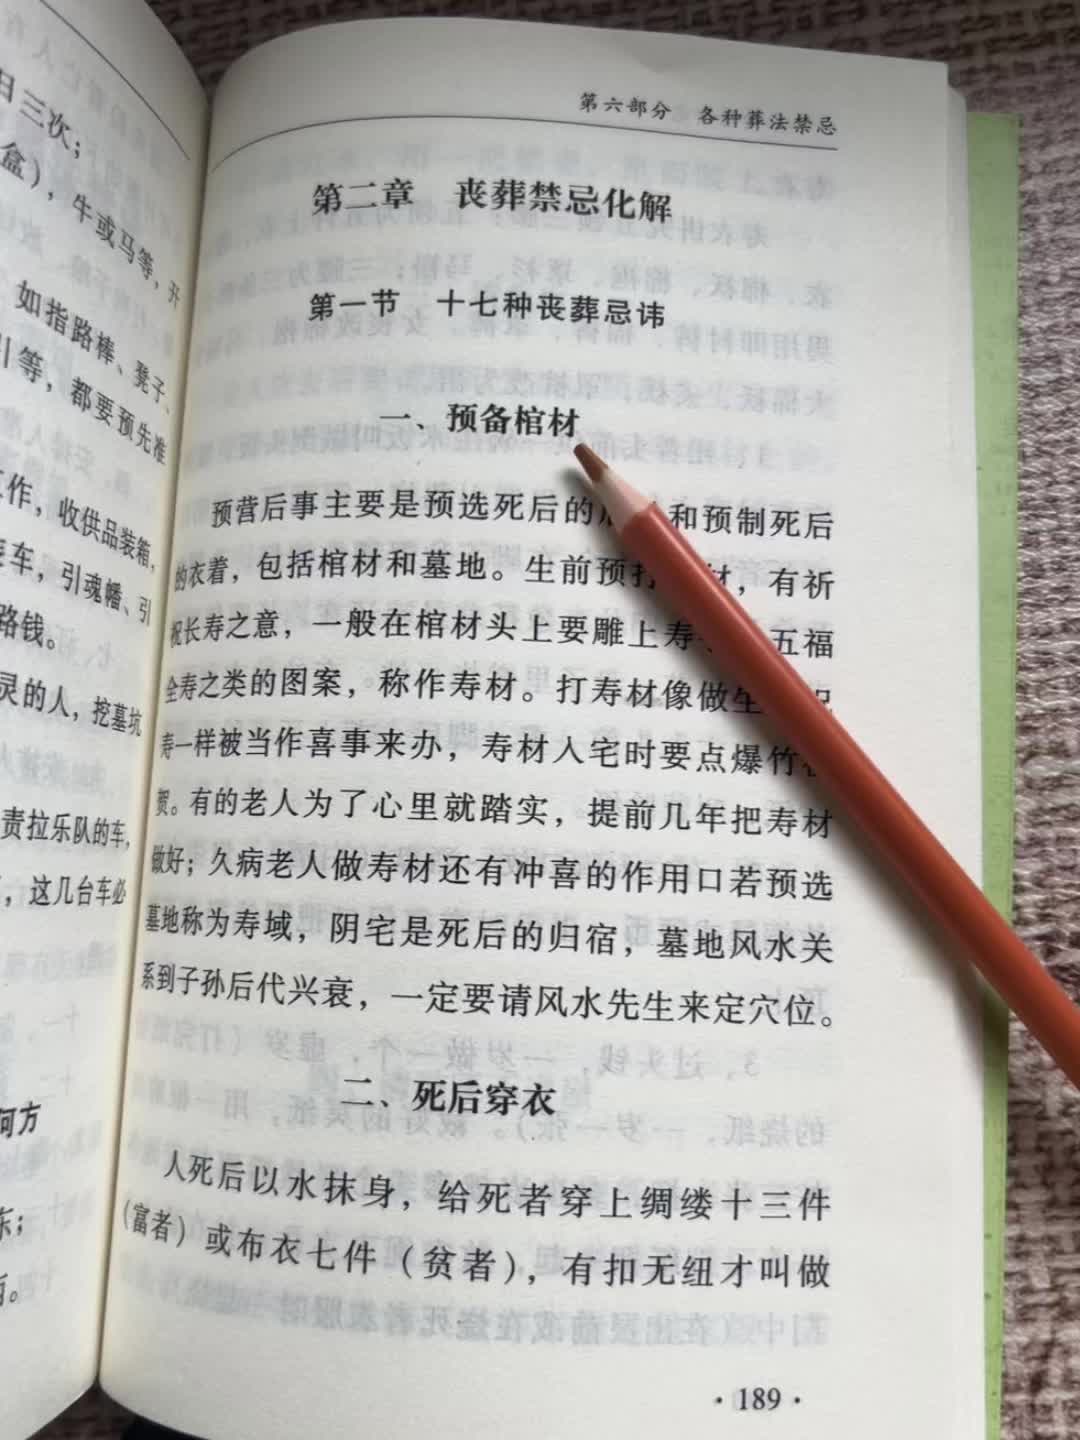 日三次；
盒），牛或马等，开
如指路棒、凳子、
引等，都要预先准
工作，收供品装箱，
车，引魂幡、引
路钱。
灵的人，挖墓坑
责拉乐队的车，
，这几台车必
何方
东；
第六部分 各种葬法禁忌
第二章 丧葬禁忌化解
第一节 十七种丧葬忌讳
一、预备棺材
预营后事主要是预选死后的 和预制死后
的衣着，包括棺材和墓地。生前预打 材，有祈
祝长寿之意，一般在棺材头上要雕上寿 五福
全寿之类的图案，称作寿材。打寿材像做生 祝
寿一样被当作喜事来办，寿材入宅时要点爆竹
贺。有的老人为了心里就踏实，提前几年把寿材
做好；久病老人做寿材还有冲喜的作用口若预选
墓地称为寿域，阴宅是死后的归宿，墓地风水关
系到子孙后代兴衰，一定要请风水先生来定穴位。
二、死后穿衣
人死后以水抹身，给死者穿上绸缕十三件
（富者）或布衣七件（贫者），有扣无纽才叫做
·189·